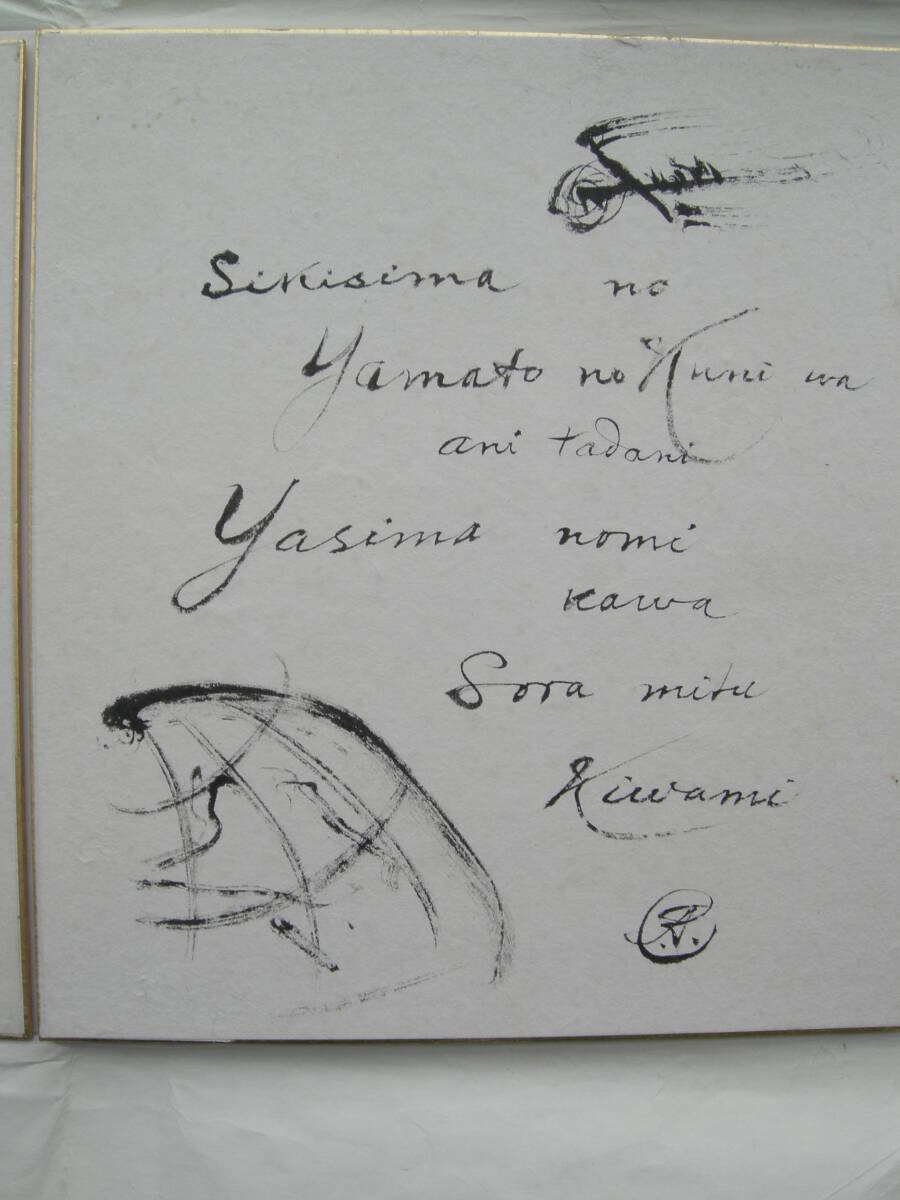 Sikisima no
Yamato no Kuni wa
ani tadani
Yasima nomi
kawa
Sora mitu
Kiwami